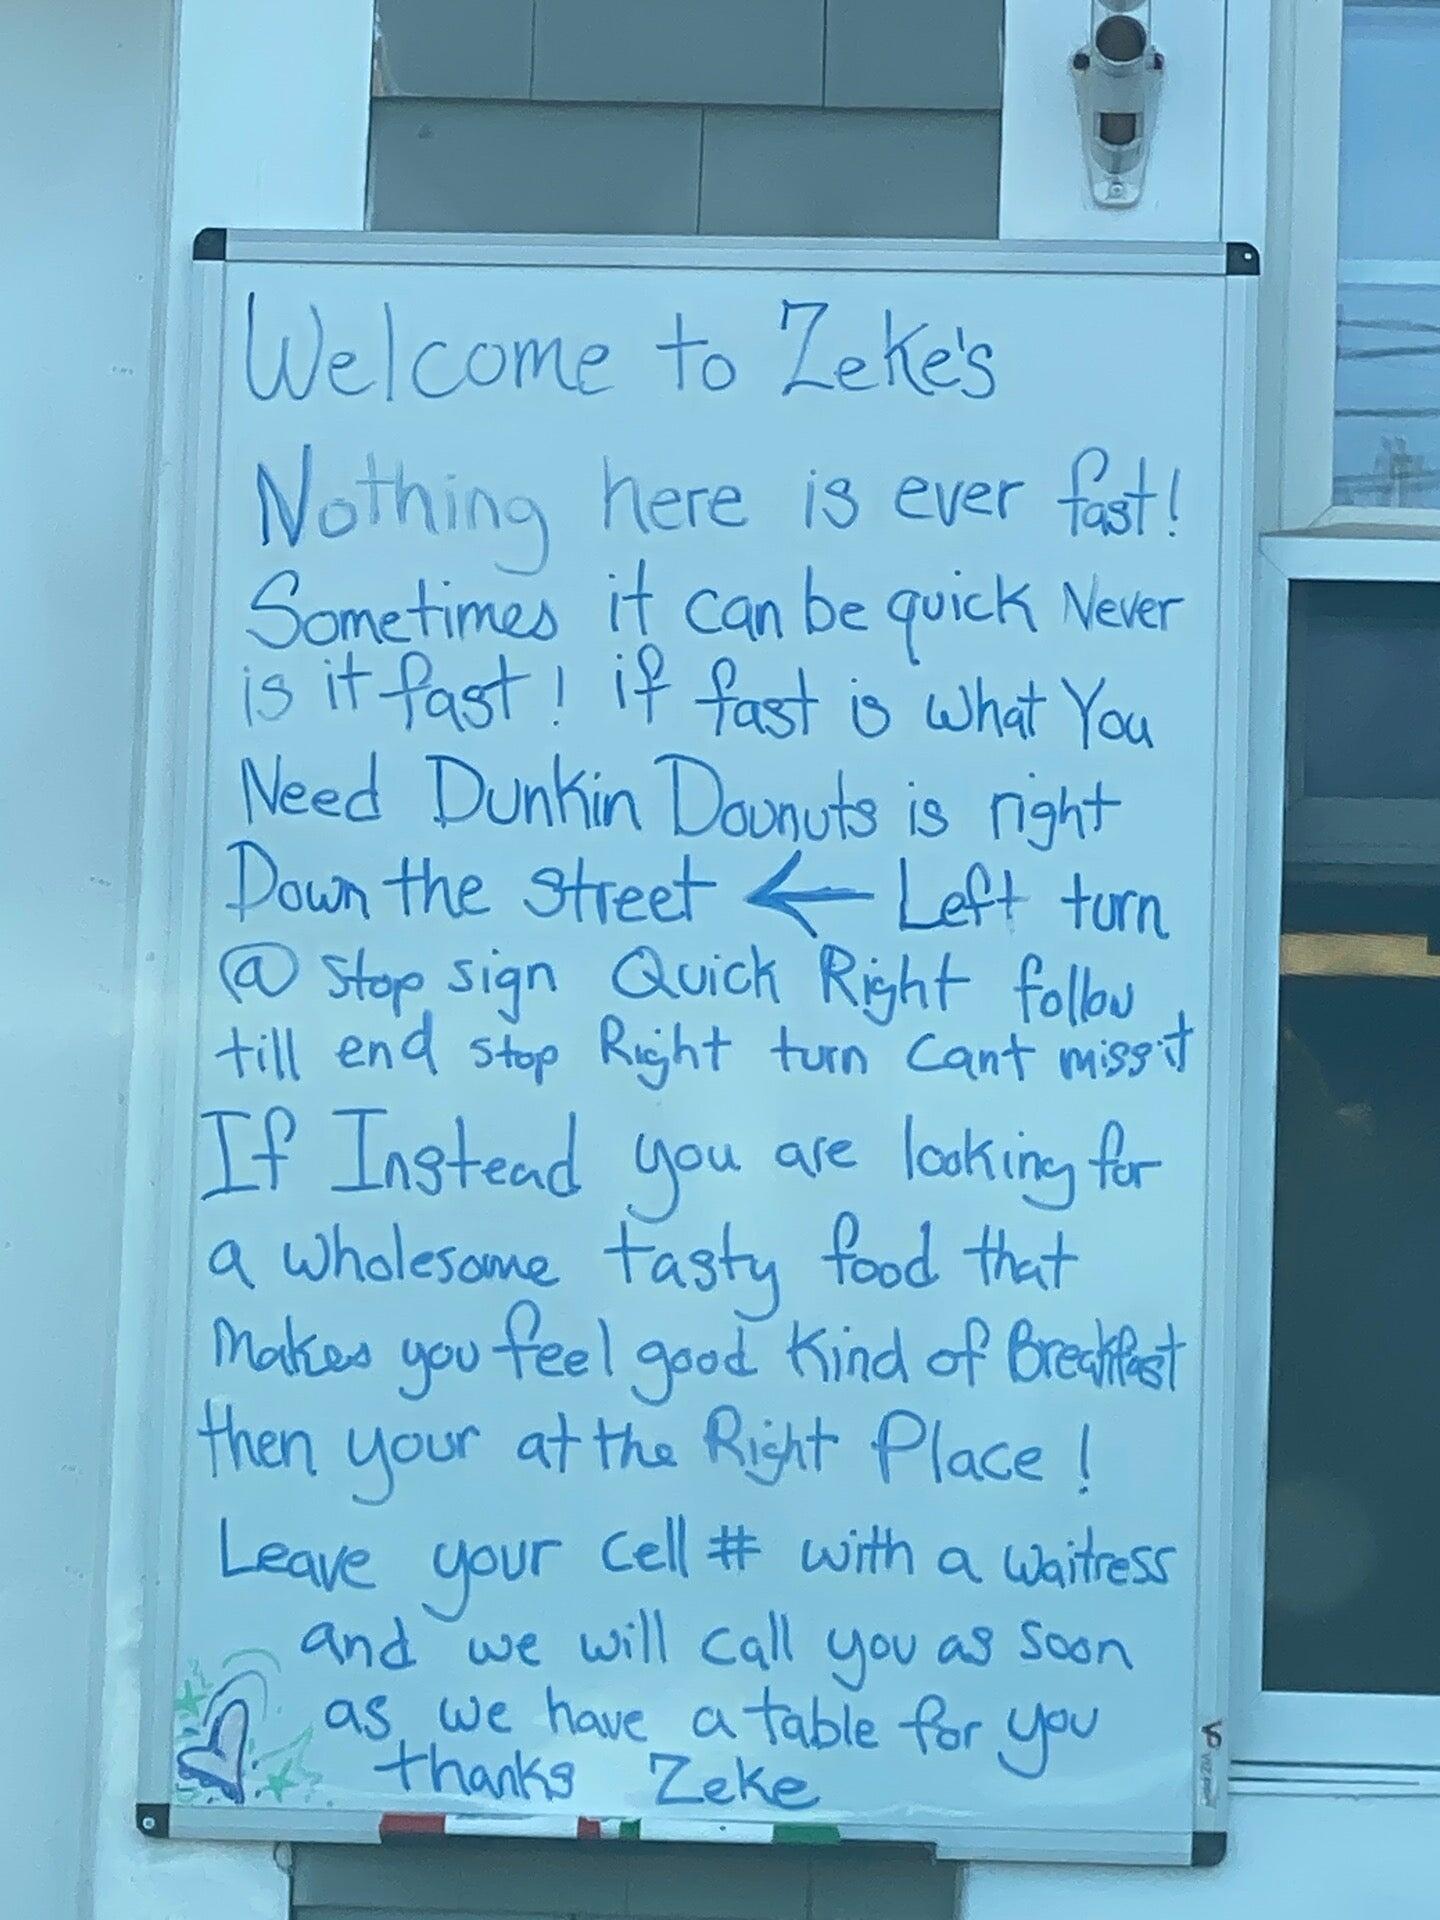 Welcome to Zeke's
Nothing here is ever fast!
Sometimes it can be quick Never
is it fast! if fast is what You
Need Dunkin Dounuts is right
Down the street ← Left turn
@ stop sign Quick Right follow
till end stop Right turn cant miss it
If Instead you are looking for
a wholesome tasty food that
makes you feel good kind of Breakfast
then your at the Right Place!
Leave your cell # with a waitress
and we will call you as soon
as we have a table for you
thanks Zeke